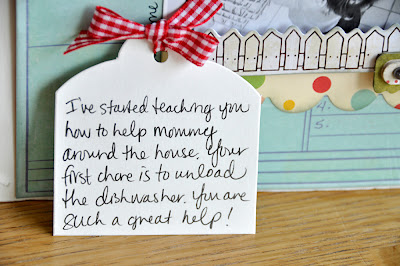 I've started teaching you
how to help mommy
around the house. Your
first chore is to unload
the dishwasher. You are
such a great help!
4.
5.